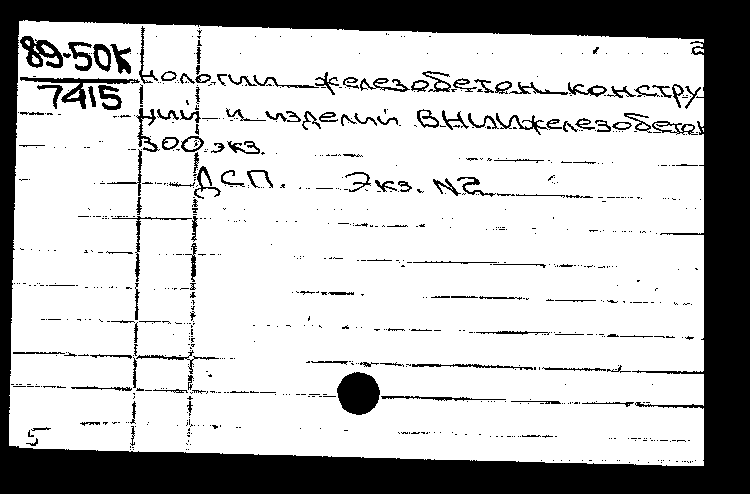 2
89-50К
7415
нологии железобетон. констру
ций и изделий ВНИИжелезобетон
300 экз.
ДСП. Экз. N2
5